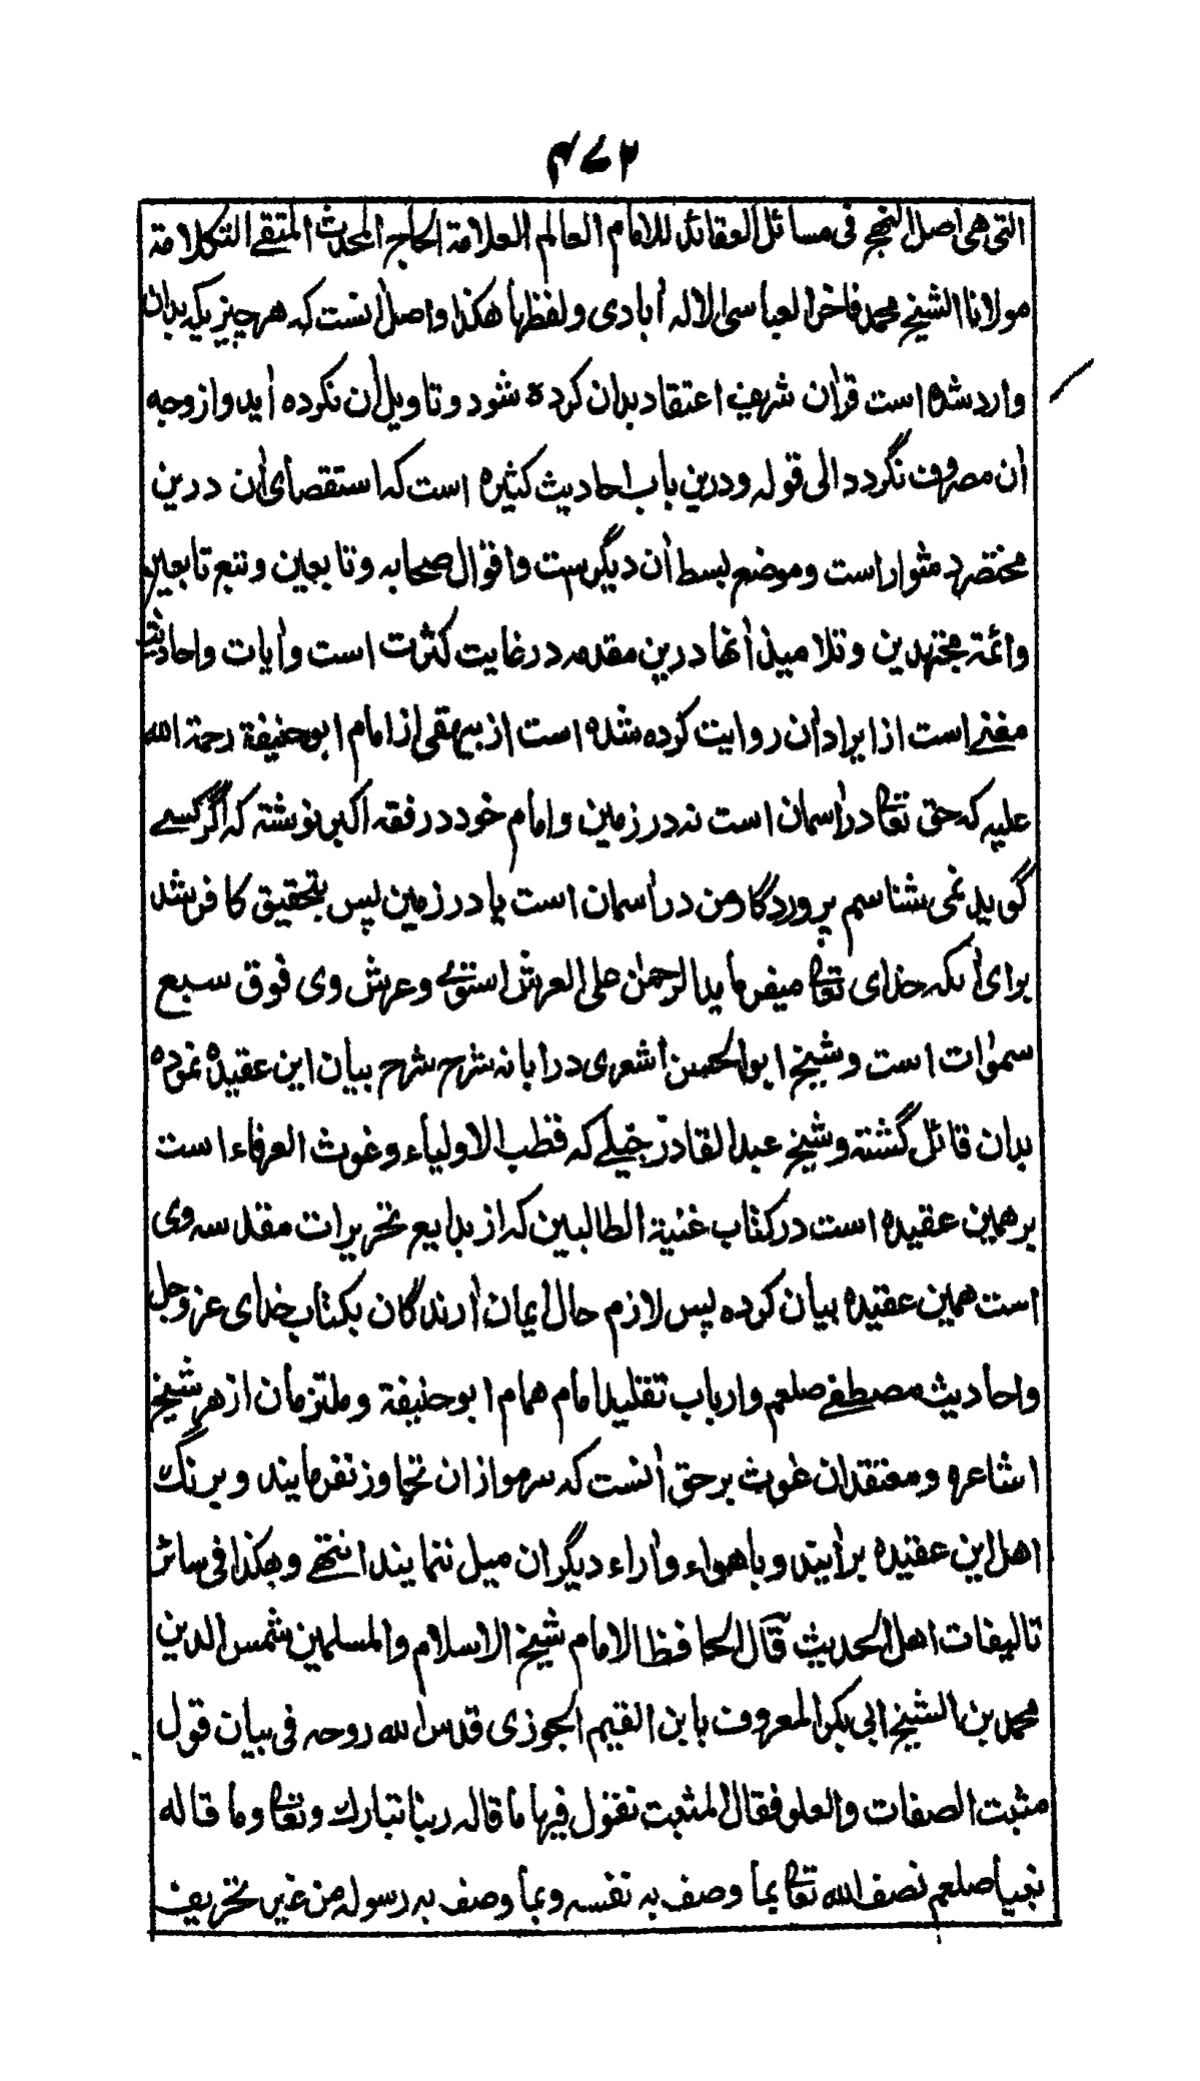 ۴۷۲
التی هی اصل النهج فی مسائل العقائد للامام العالم العلامة الحاج المحدث المتقے التکلامة
مولانا الشیخ محمد فاخر العباسی الاله اٰبادی ولفظها هکذا واصل اٰنست که هر چیزیکه بدان
وارد شده است قراٰن شریف اعتقاد بدان کرده شود وتاویل اٰن نکرده اٰید واز وجه
اٰن مصروف نگردد الی قوله ودرین باب احادیث کثیره است که استقصای اٰن درین
مختصر دشوار است وموضع بسط اٰن دیگرست واقوال صحابه وتابعین وتبع تابعین
وائمة مجتهدین وتلامیذ اٰنها درین مقدمه در غایت کثرت است واٰیات واحادیث
مغنے است از ایراد اٰن روایت کرده شده است از بیهقی از امام ابو حنیفة رحمة الله
علیه که حق تعالٰی در اٰسمان است نه در زمین وامام خود در فقه اکبر نوشته که اگر کسے
گوید نمی شناسم پروردگار من در اٰسمان است یا در زمین پس بتحقیق کافر شد
برای اٰنکه خدای تعالٰی میفرماید الرحمٰن علی العرش استوے وعرش وی فوق سبع
سمٰوٰات است وشیخ ابو الحسن اشعری در ابانه شرح شرح بیان این عقیده نموده
بدان قائل گشته وشیخ عبد القادر جیلے که قطب الاولیاء وغوث العرفاء است
برهمین عقیده است در کتاب غنیة الطالبین که از بدایع تحریرات مقدسه وی
است همین عقیده بیان کرده پس لازم حال ایمان اٰرندگان بکتاب خدای عز وجل
واحادیث مصطفے صلعم وارباب تقلید امام همام ابو حنیفة وملتزمان از هر شیخ
اشاعره ومعتقدان غوث بر حق اٰنست که سرمو ازان تجاوز نفرمایند وبرنگ
اهل این عقیده براٰیند وباهواء واٰراء دیگران میل ننمایند انتهے وهکذا فی سائر
تالیفات اهل الحدیث قال الحافظ الامام شیخ الاسلام والمسلمین شمس الدین
محمد بن الشیخ ابی بکر المعروف بابن القیم الجوزی قدس الله روحه فی بیان قول
مثبت الصفات والعلو فقال المثبت نقول فیها ما قاله ربنا تبارک وتعالٰی وما قاله
نبینا صلعم نصف الله تعالٰی بما وصف به نفسه وبما وصف به رسوله من غیر تحریف